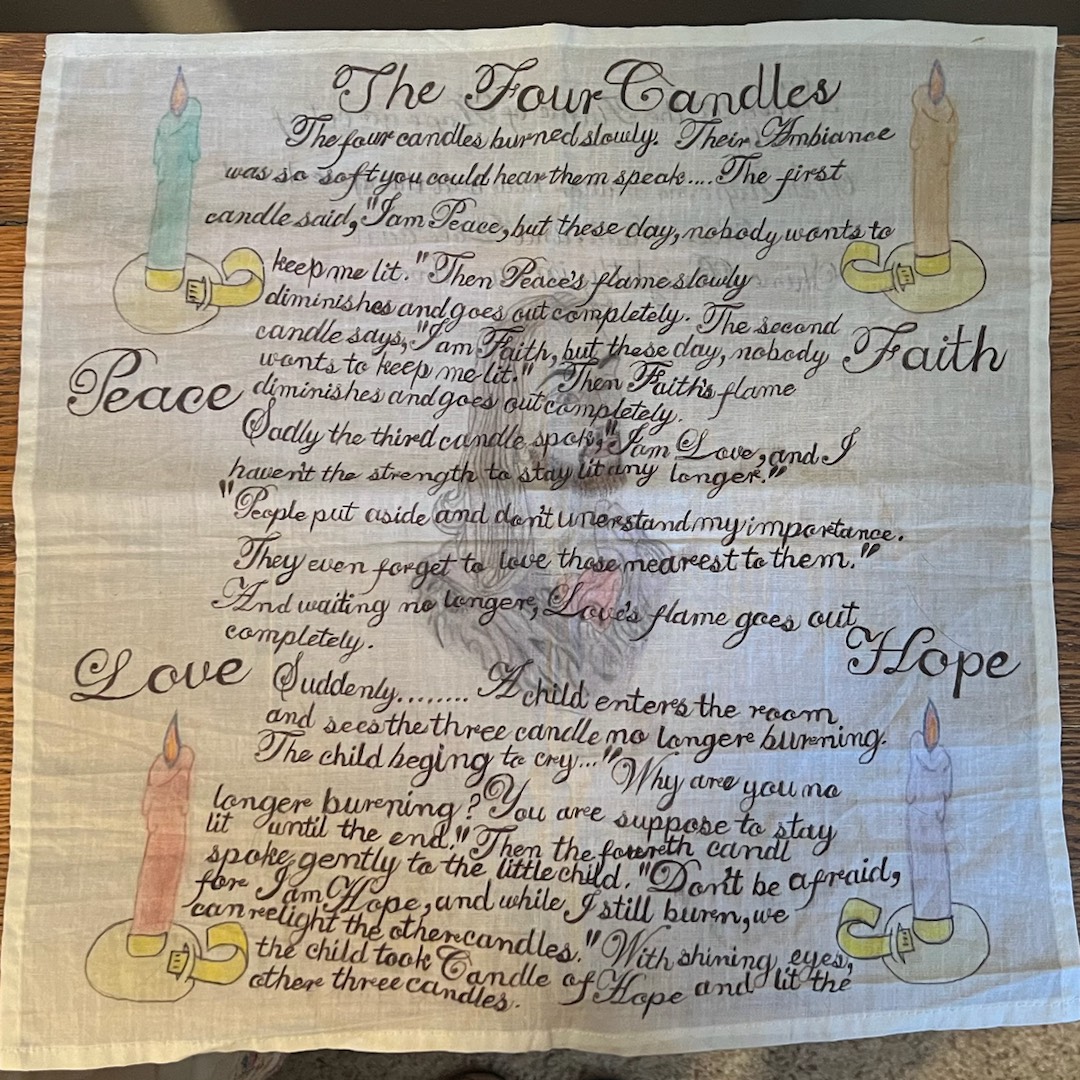 The Four Candles
The four candles burned slowly. Their Ambiance
was so soft you could hear them speak.... The first
candle said, "I am Peace, but these day, nobody wants to
keep me lit." Then Peace's flame slowly
diminishes and goes out completely. The second
candle says, "I am Faith, but these day, nobody
wants to keep me lit." Then Faith's flame
diminishes and goes out completely.
Peace
Faith
Sadly the third candle spok, "I am Love, and I
haven't the strength to stay lit any longer."
"People put aside and don't unerstand my importance.
They even forget to love those nearest to them."
And waiting no longer, Love's flame goes out
completely.
Love
Hope
Suddenly........ A child enters the room
and sees the three candle no longer burning.
The child beging to cry... "Why are you no
longer burening? You are suppose to stay
lit until the end." Then the foureth candl
spoke gently to the little child. "Don't be afraid,
for I am Hope, and while I still buren, we
can relight the other candles." With shining eyes,
the child took Candle of Hope and lit the
other three candles.